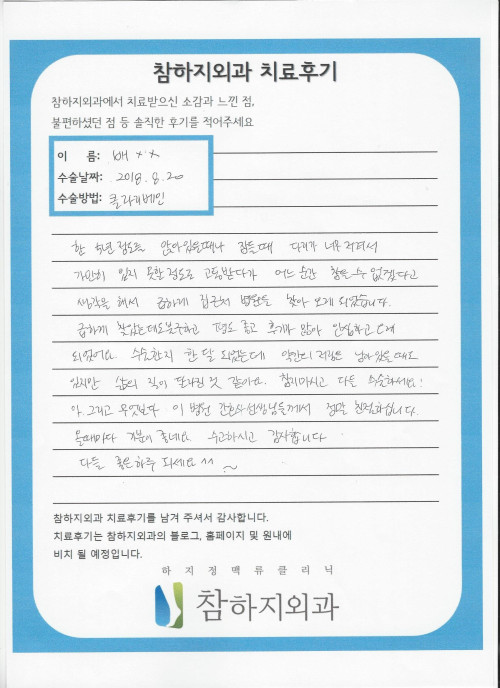 참하지외과 치료후기
참하지외과에서 치료받으신 소감과 느낀 점,
불편하셨던 점 등 솔직한 후기를 적어주세요
이 름: 배 x x
수술날짜: 2018. 8. 20
수술방법: 클라리베인
한 5년 정도를 앉아있을때나 잠들때 다리가 너무 저려서
가만히 있지 못할정도로 고통받다가 어느 순간 참을 수 없겠다고
생각을 해서 급하게 집근처 병원을 찾아 오게 되었습니다.
급하게 찾았는데도 불구하고 평도 좋고 후기가 많아 안심하고 오게
되었어요. 수술한지 한 달 되었는데 약간의 저림은 남아있을때도
있지만 삶의 질이 달라진 것 같아요. 참지마시고 다들 수술하세요!
아. 그리고 무엇보다 이 병원 간호사선생님들께서 정말 친절하십니다.
올때마다 기분이 좋네요. 수고하시고 감사합니다
다들 좋은하루 되세요 ^^
참하지외과 치료후기를 남겨 주셔서 감사합니다.
치료후기는 참하지외과의 블로그, 홈페이지 및 원내에
비치 될 예정입니다.
하 지 정 맥 류 클 리 닉
참하지외과